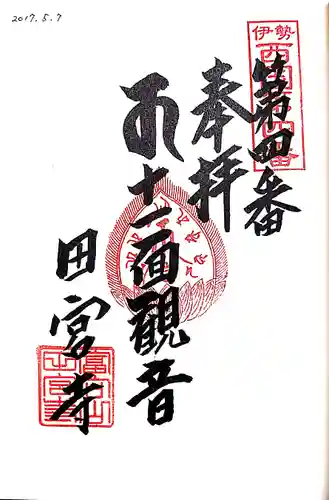 2017.5.7
伊勢
西国第四番
第四番
奉拝
十一面観音
田宮寺